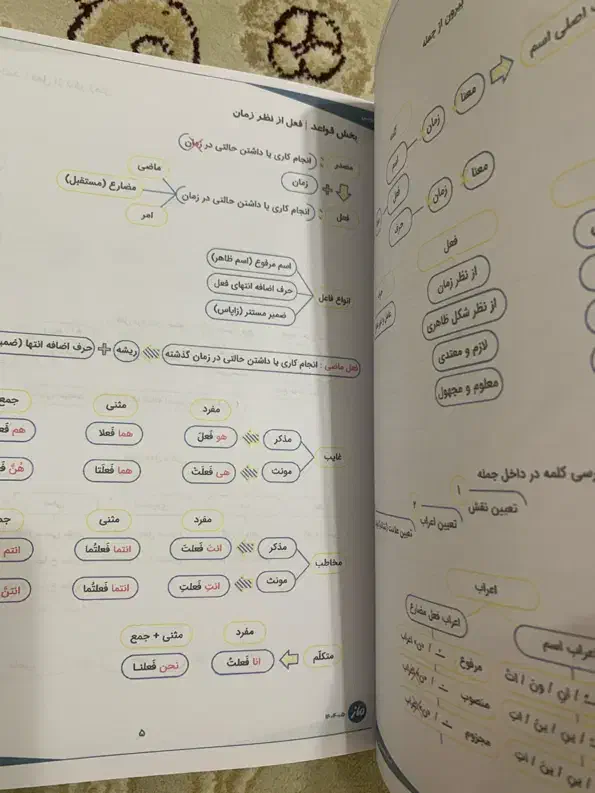 بخش قواعد | فعل از نظر زمان
مصدر : انجام کاری یا داشتن حالتی در زمان
زمان
ماضی
فعل : انجام کاری یا داشتن حالتی در زمان
مضارع (مستقبل)
امر
انواع فاعل
اسم مرفوع (اسم ظاهر)
حرف اضافه انتهای فعل
ضمیر مستتر (زاپاس)
فعل ماضی : انجام کاری یا داشتن حالتی در زمان گذشته
ریشه + حرف اضافه انتها (ضمیر
مفرد مثنی جمع
غایب
مذکر هو فَعلَ هما فَعلا هم
مونث هی فَعلَتْ هما فَعلَتا هُنَّ
مفرد مثنی
مخاطب
مذکر انتَ فَعلتَ انتما فَعلتُما انتم
مونث انتِ فَعلتِ انتما فَعلتُما انتنَّ
مفرد مثنی + جمع
متکلّم انا فَعلتُ نحن فَعلنا
ماز
۵
بیرون از جمله
اصلی اسم
معنا زمان اسم
معنا زمان فعل
حرف
فعل
از نظر زمان
از نظر شکل ظاهری
لازم و معتدی
معلوم و مجهول
رسی کلمه در داخل جمله
۱ تعیین نقش
۲ تعیین اعراب
اعراب
اعراب فعل مضارع
اعراب اسم
مرفوع
منصوب
مجزوم